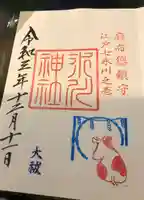 麻布總鎮守
江戸七氷川之壱
氷川
神社
令和三年十二月十一日
大祓